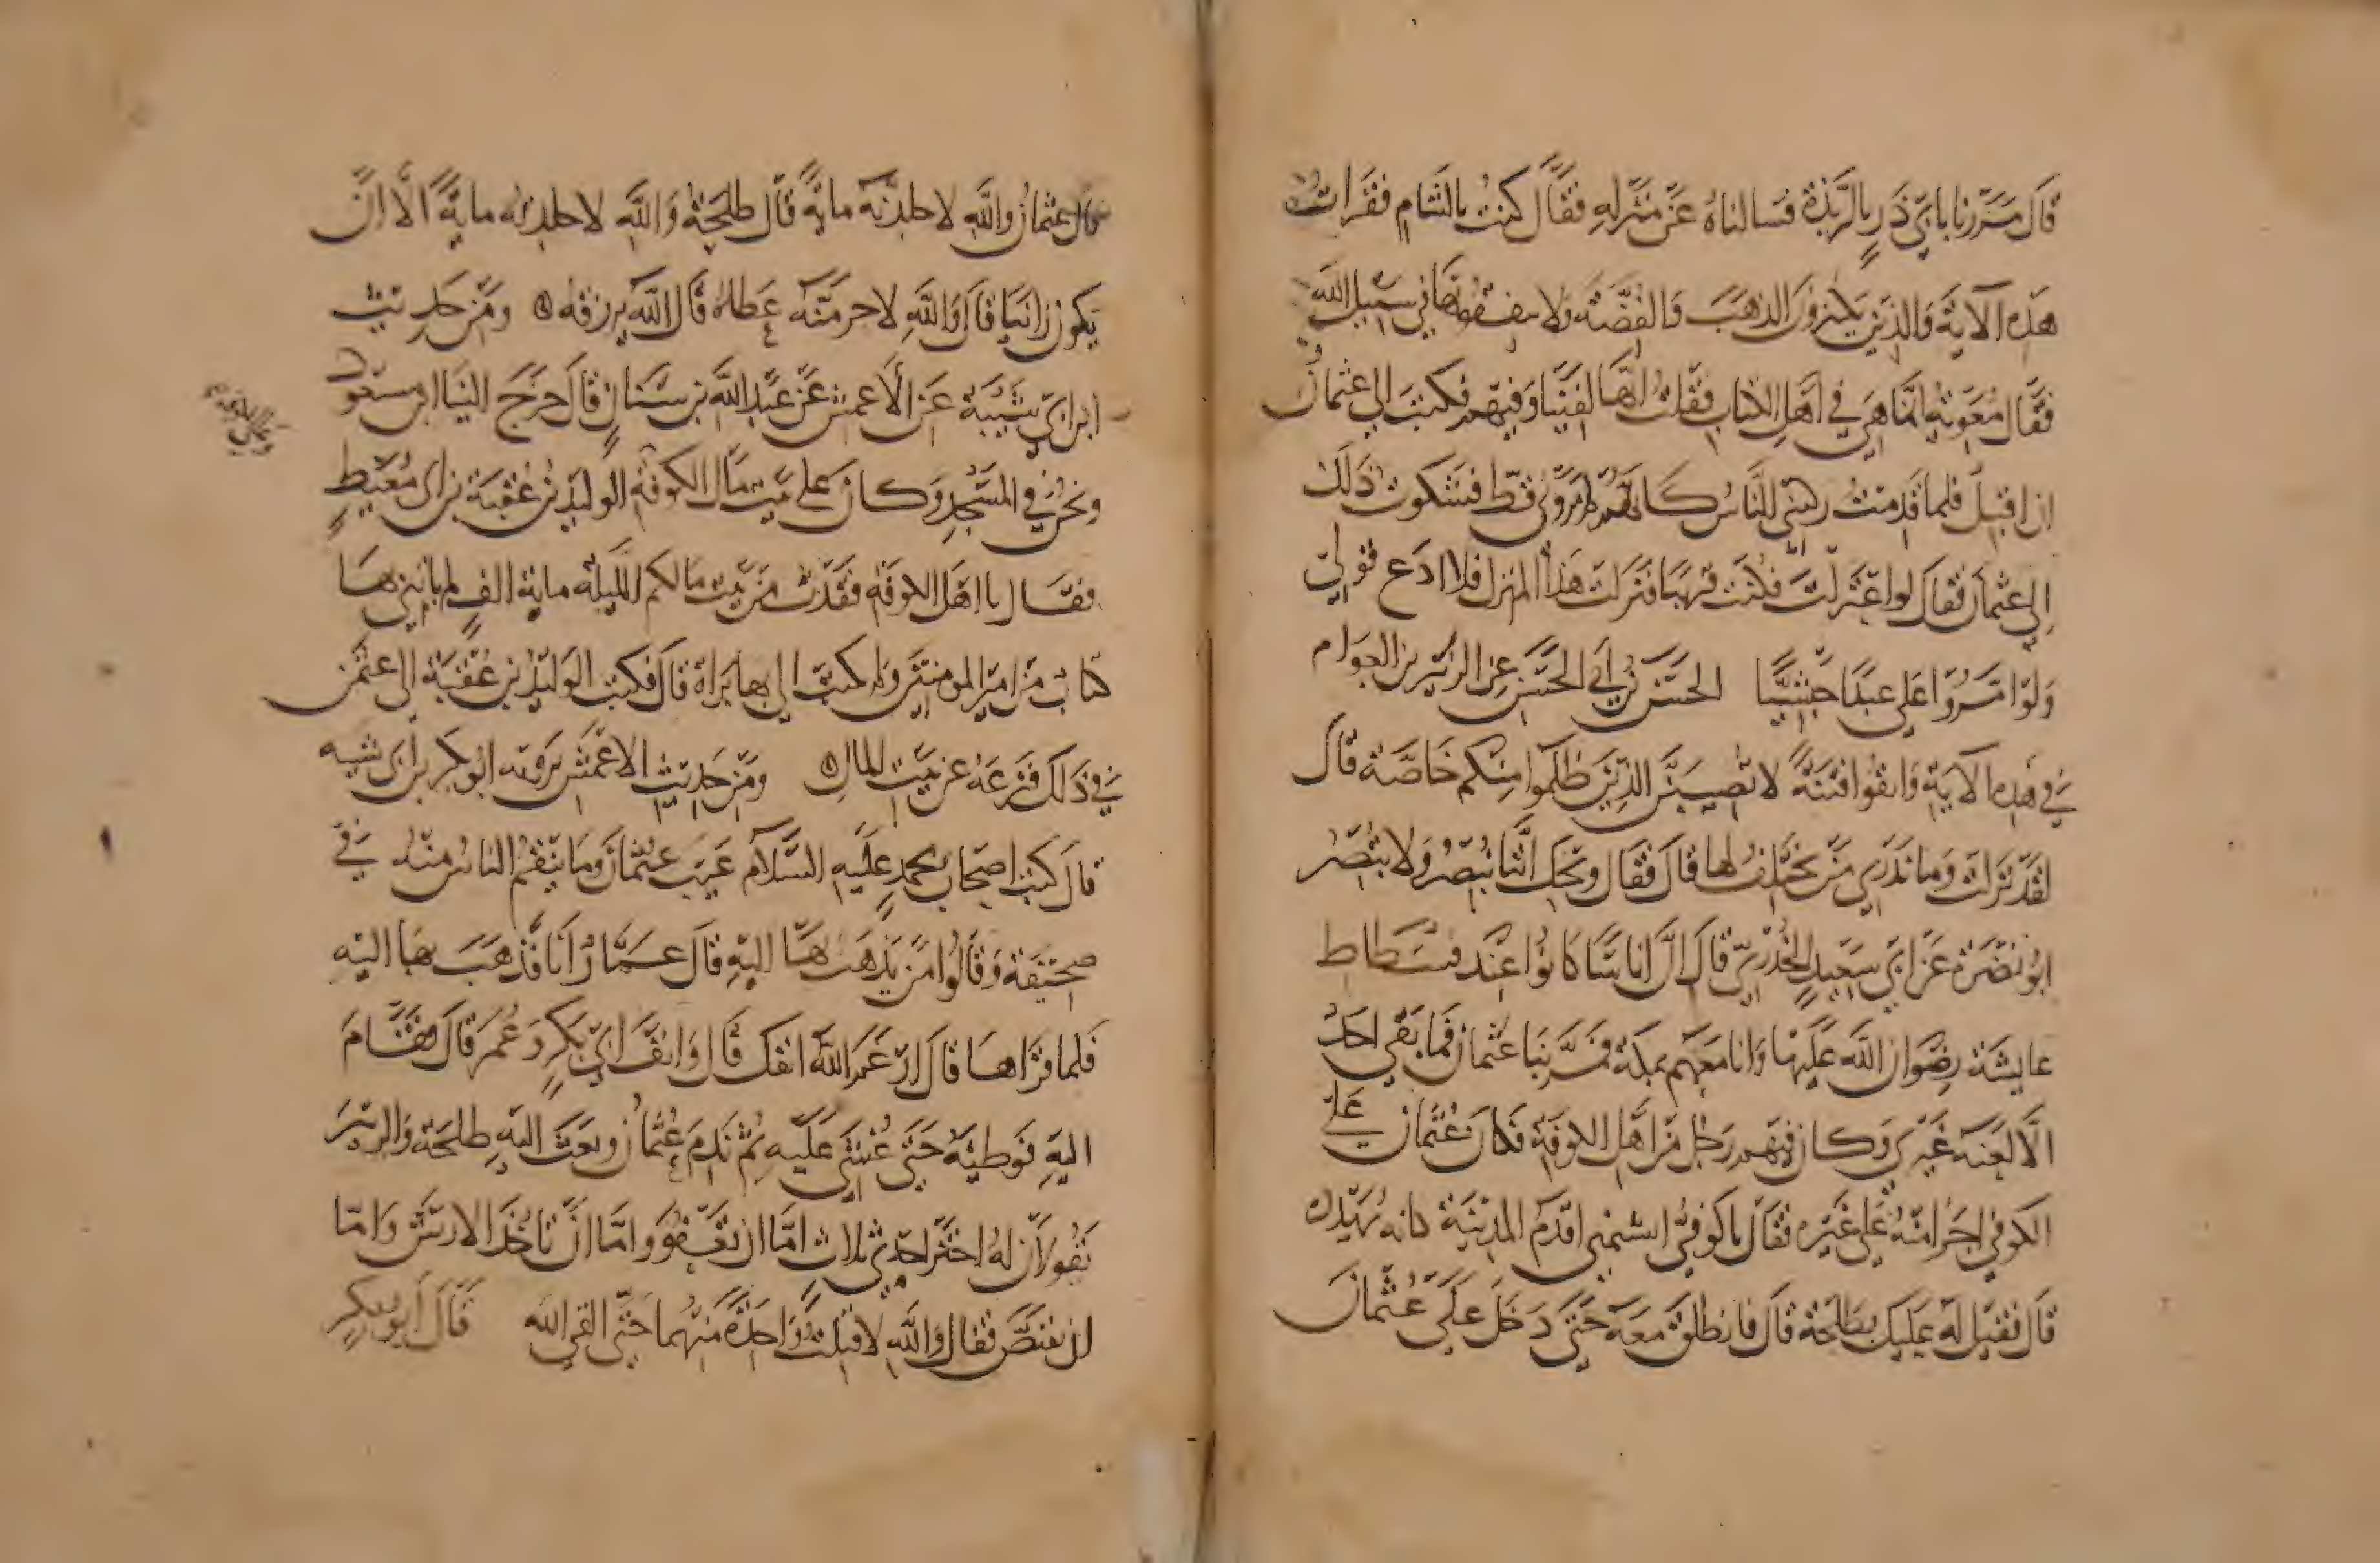 قَالَ مَرَرنا بابي ذَرٍ بالرَّبَذة فسالناهُ عَنْ مَنْزِلِهِ فقَالَ كنتُ بالشَامِ فقرَاتُ
هَذِه الآيَة وَالذين يَكنزونَ الذهَبَ وَالفِضَّة وَلا ينفقونها في سَبيل الله
فقَال مُعَوية انما هِيَ في اهْلِ الكتاب فقلتُ انها لفينَا وَفيهم فكتبَ الي عثمانُ
ان اقبِل فلما قَدِمتُ رهتني الناسُ كانهُم لم يرَوني قط فشكوت ذَلكَ
الي عثمانَ فقالَ لو اعتزلتَ فكنتَ قريبًا فنزلت هَذا المنزل فلا ادَع قولي
وَلوا امَّرُوا عَلي عبدًا حبشيًّا الحسَن بن ابي الحسَن عن الزبير بن العوام
في هَذِه الآيَةِ وَاتقوا فتنَةً لا تصيبَنَّ الذين ظَلموا منكم خَاصَّة قَالَ
لقَد نزلت وَما ندري مَن يختلف لها قالَ فقَال ويحَك انَّنا نبصُر وَلا نبصر
ابو نضرَة عَن ابي سَعيدٍ الخُدْريِّ قالَ انَّ اناسًا كانُوا عندَ فسْطاط
عايشة رِضوان الله عَليها وَانا معَهم بمكة فمَرَّ بنا عثمانُ فما بَقي احَدٌ
الَّا لعَنهُ غَيري وَكانَ فيهم رَجُل مَن اهْل الكوفَة فكانَ عُثمان عَلي
الكوفي اجرَا منهُ عَلي غَيره فقالَ يا كوفيُّ اشتمني اقدَم المدينة كانه يُهَدِّده
قَالَ فقيلَ لهُ عَليكَ بطلحَة قالَ فانطلقَ معَهُ حَتي دَخلَ عَلَي عُثمانَ
قال عثمانُ والله لاجلدنه مايةً قَال طلحَةُ وَاللَّهِ لا تجلدنه مايَةً الَّا انْ
يَكون زانيًا قالَ وَاللَّهِ لاحرمَنَّهُ عَطاهُ قَالَ اللَّهُ يرزقه ومَن حَديث
ابن ابي شَيْبَة عَنِ الاَعمش عَنْ عَبْد اللَّه بن سنان قَالَ خرَجَ الينَا ابن مسعود
ونحنُ في المسْجِد وَكانَ علي بيت مَال الكوفَةِ الوليد بن عُقبَة بن ابي مُعَيطٍ
فقَال يا اهَل الكوفَة فقدت من بيت مالكم الليلة ماية الف لم ياتني بها
كتابٌ مِن امير المومنينَ وَلم يكتب الي بها بَراة قالَ فكتبَ الوَليدُ بن عُقْبَة الي عثمن
في ذَلكَ فنزعَهُ عن بَيت المالِ ومن حَديث الاعمَش يَرويه ابو بكر بن ابي شيبه
قالَ كتبَ اصحاب محمد عليه السَّلام عَيبَ عثمانَ وما ينقم الناسُ منهُ في
صحيفة وَقَالُوا من يَذهَبُ بها اليهِ قالَ عَمَّارٌ انا فذهَبَ بها اليه
فَلما قرَاهَا قالَ ارغمَ اللَّه انفك قَالَ وَانفَ ابي بَكرٍ وَ عُمرَ قالَ فقَامَ
اليهِ فوَطئهُ حَتي غُشيَ عَليه ثم نَدِمَ عُثمانُ وبعَثَ اليهِ طلحَة وَالزبيرَ
يَقولانِ لهُ اختر احدي ثلاثٍ امَّا ان تعفو وامَّا انْ تاخُذَ الارشَ وَامَّا
ان تقتصَّ فقالَ وَاللَّهِ لا قبلتُ وَاحِدَةً منهما حَتّي القي الله قَالَ أبو بكرٍ